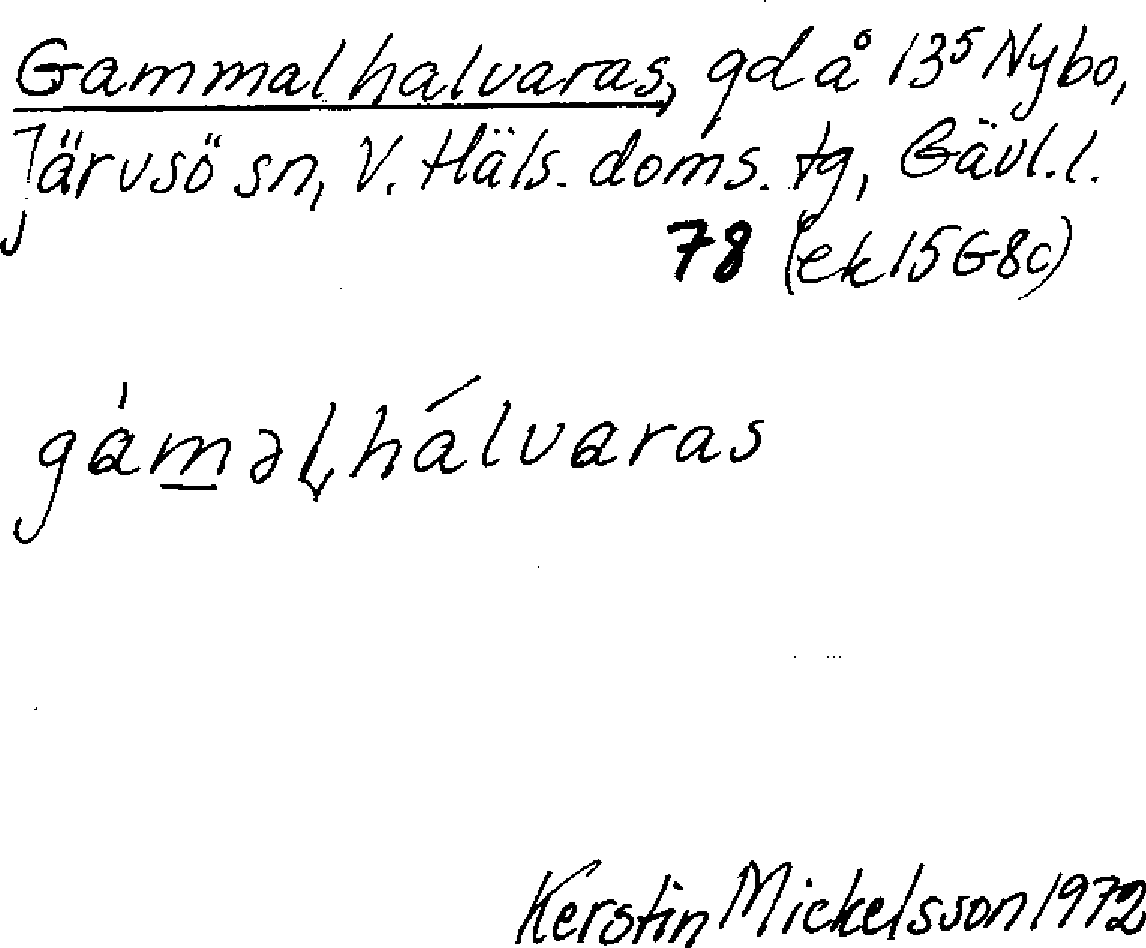 Gammalhalvaras, gd å 13⁵ Nybo,
Järvsö sn, V. Häls. doms. tg, Gävl. l.
78 (ek 15G8c)
gámal, hálvaras
Kerstin Mickelsson 1972